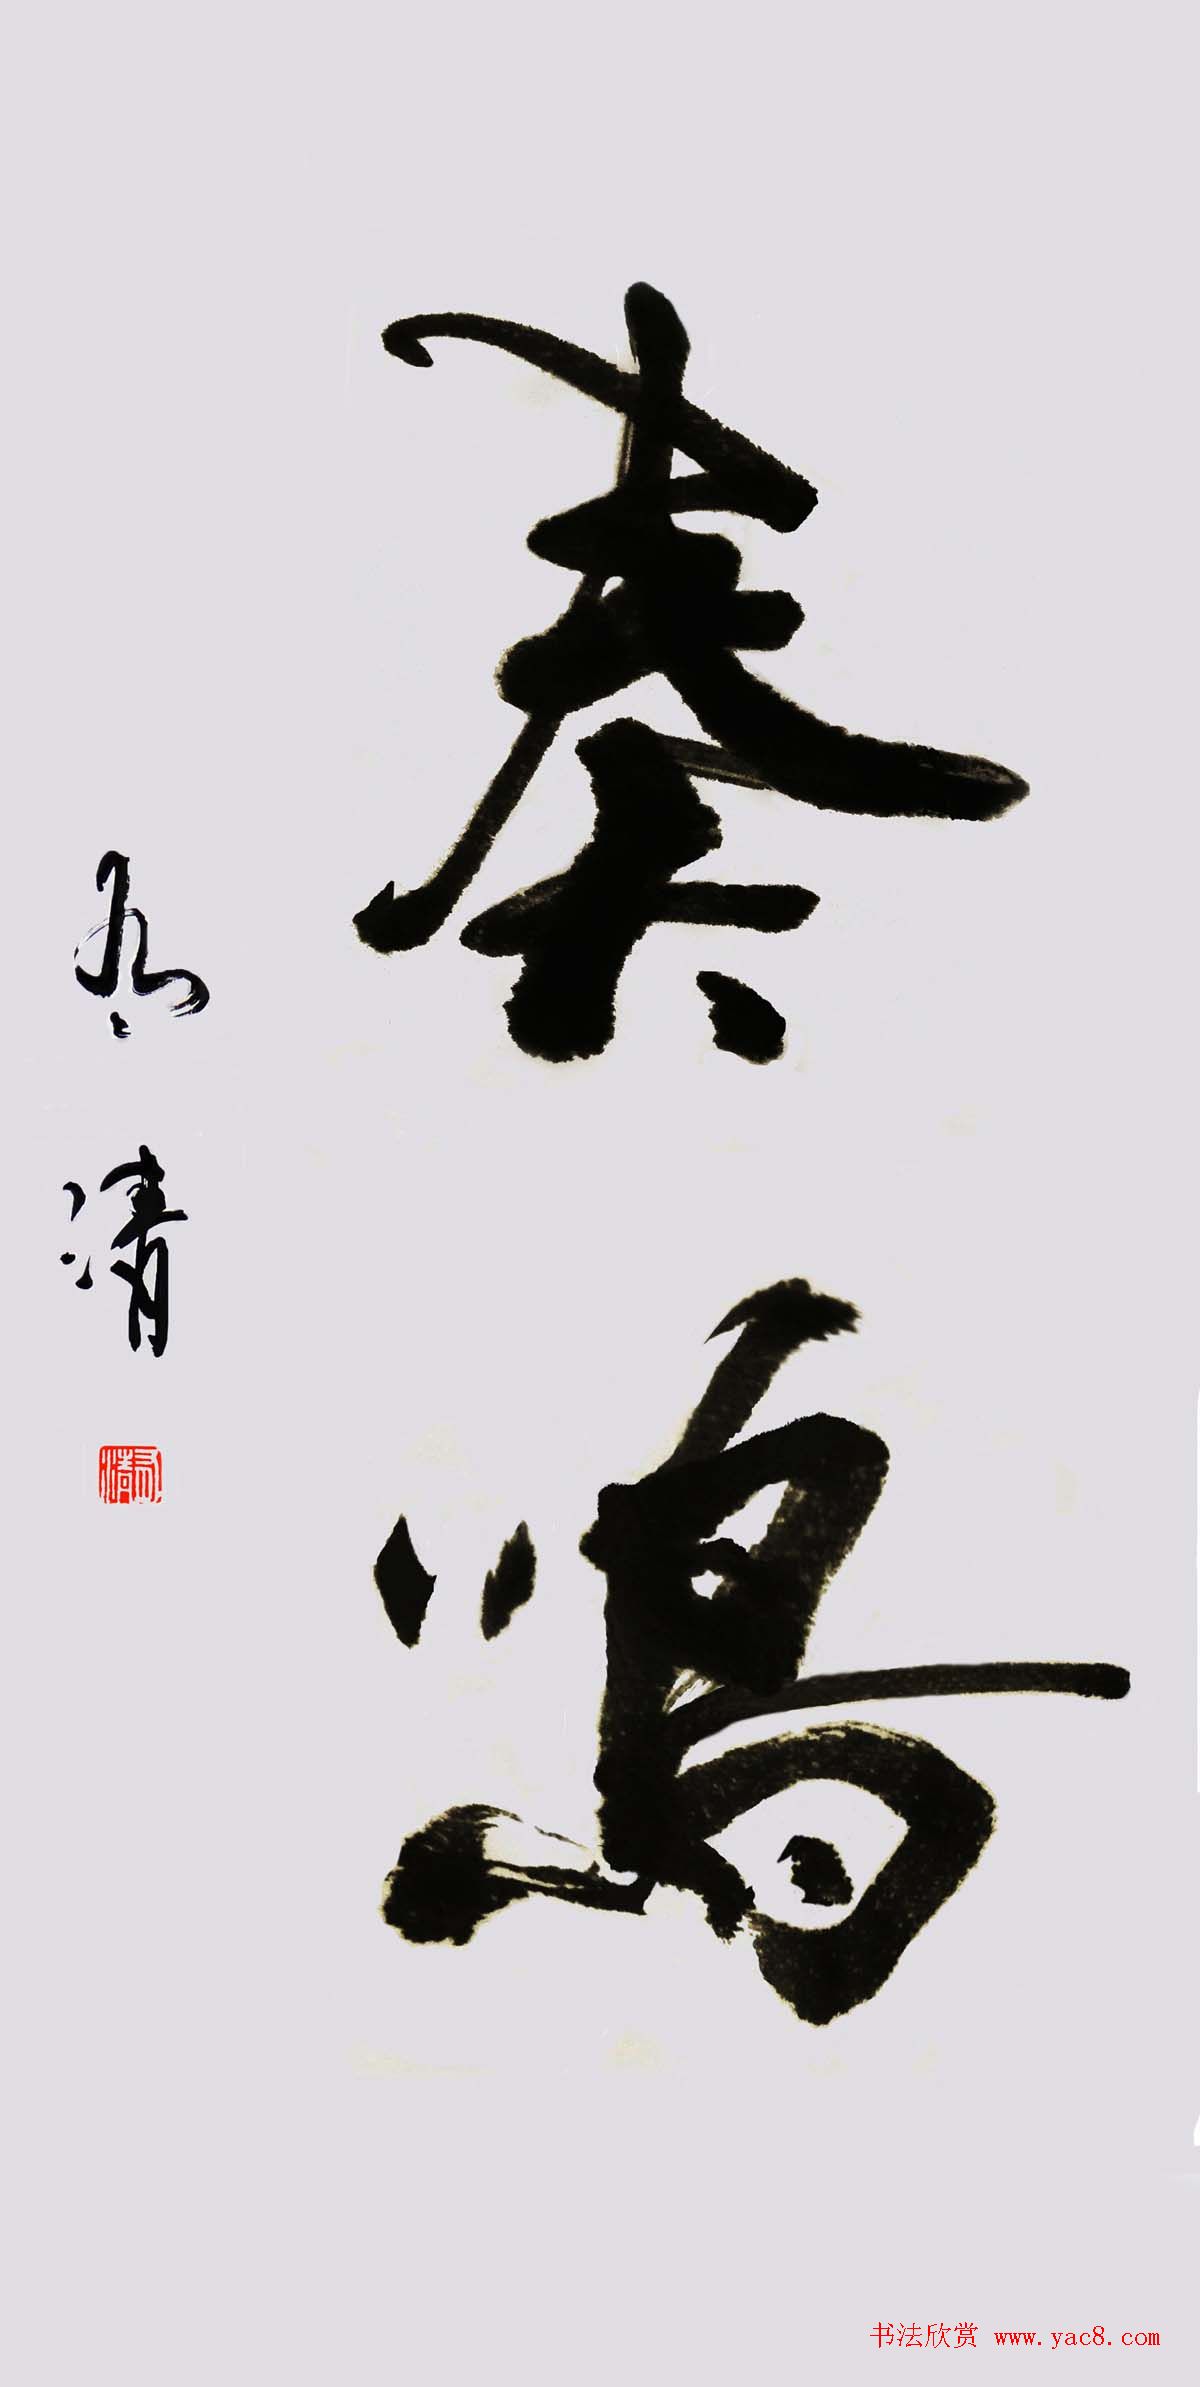 奏
鳴
清
书法欣赏 www.yac8.com